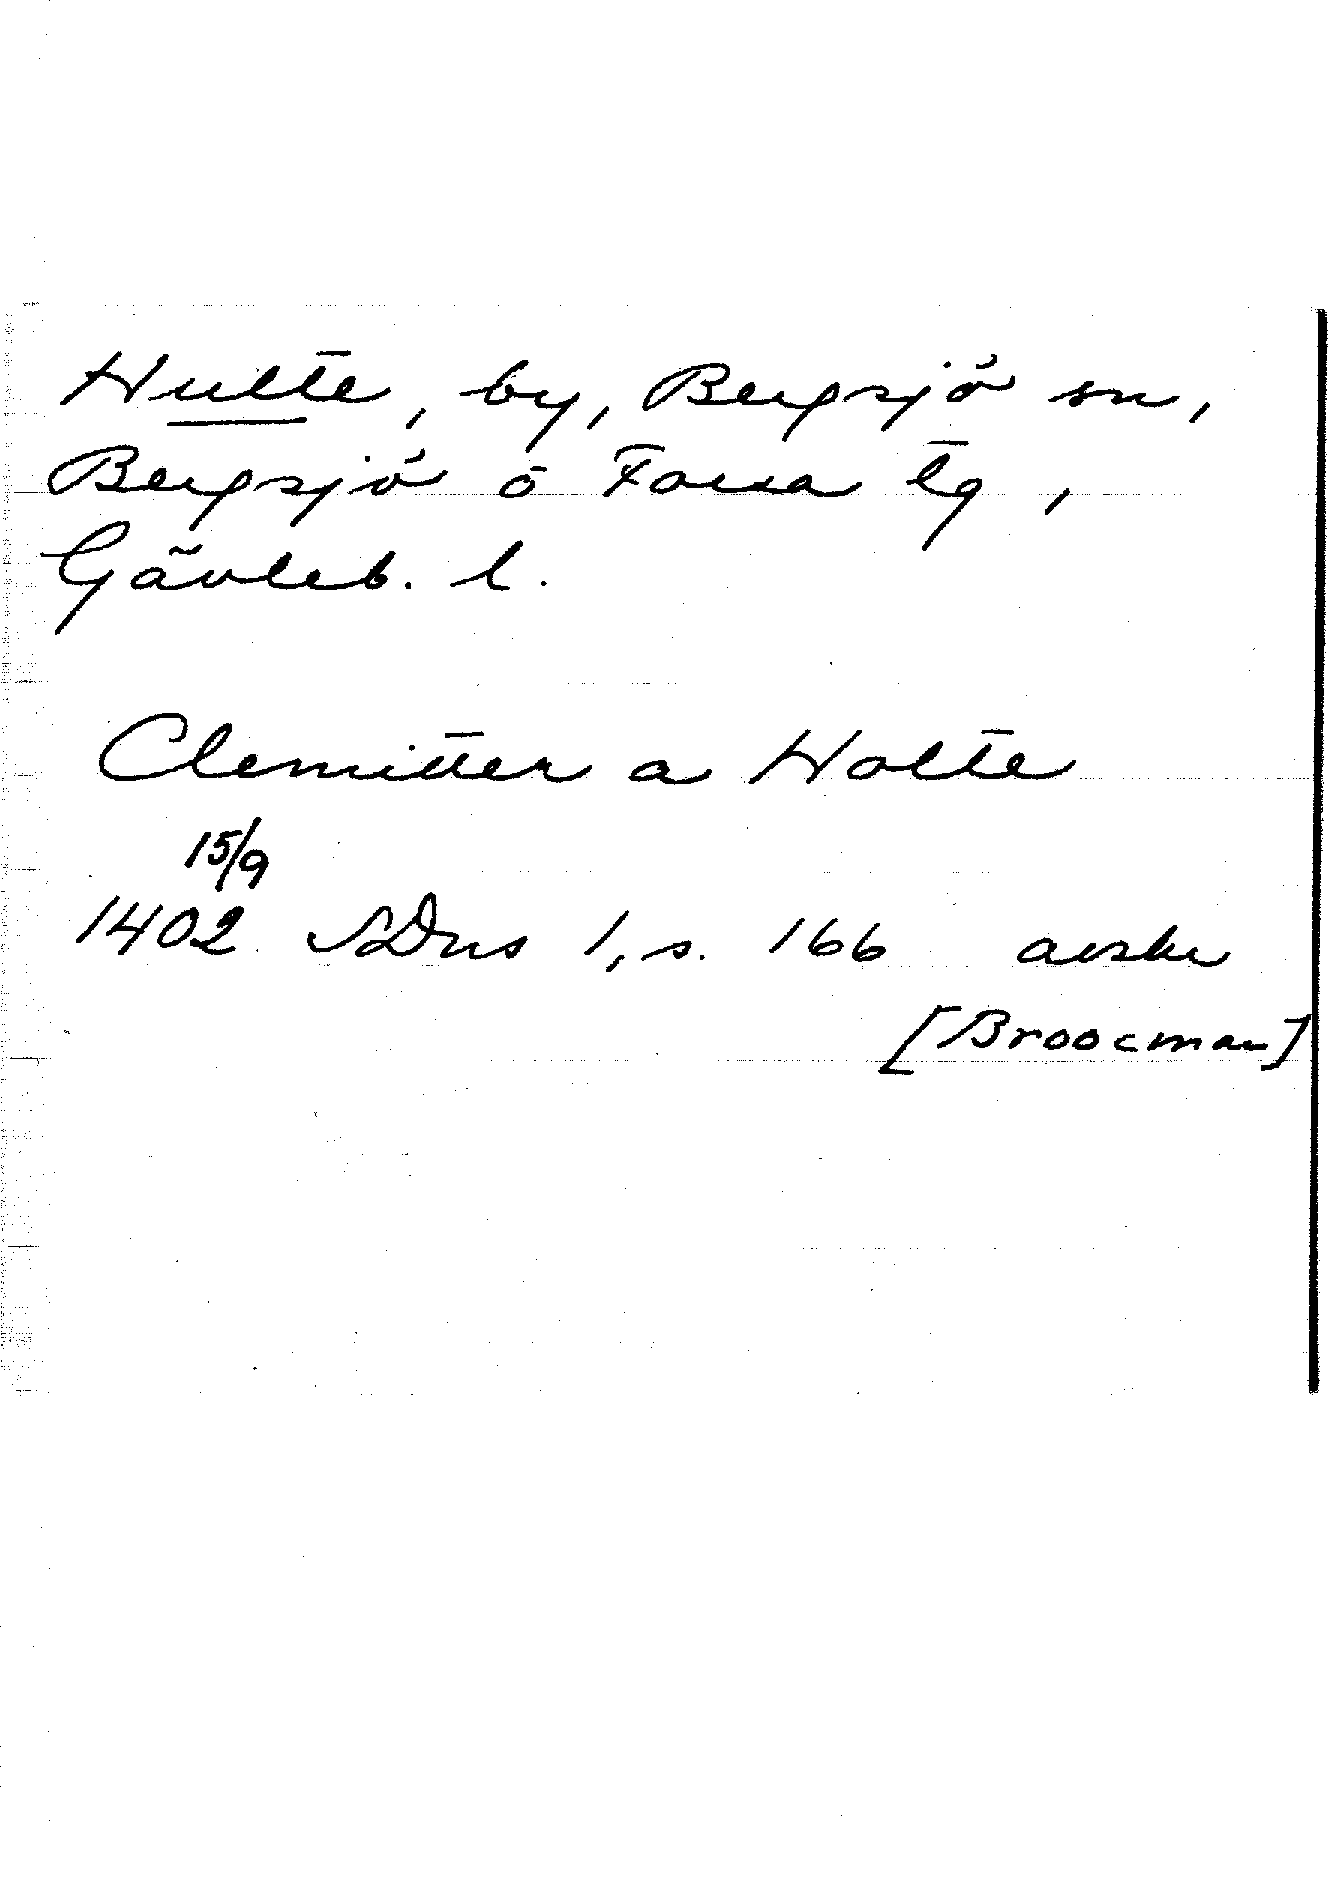 Hulte, by, Bergsjö sn,
Bergsjö o Forsa tg,
Gävleb. l.
Clemitter a Holte
15/9
1402 SDns 1, s. 166 avskr
[Broocman]